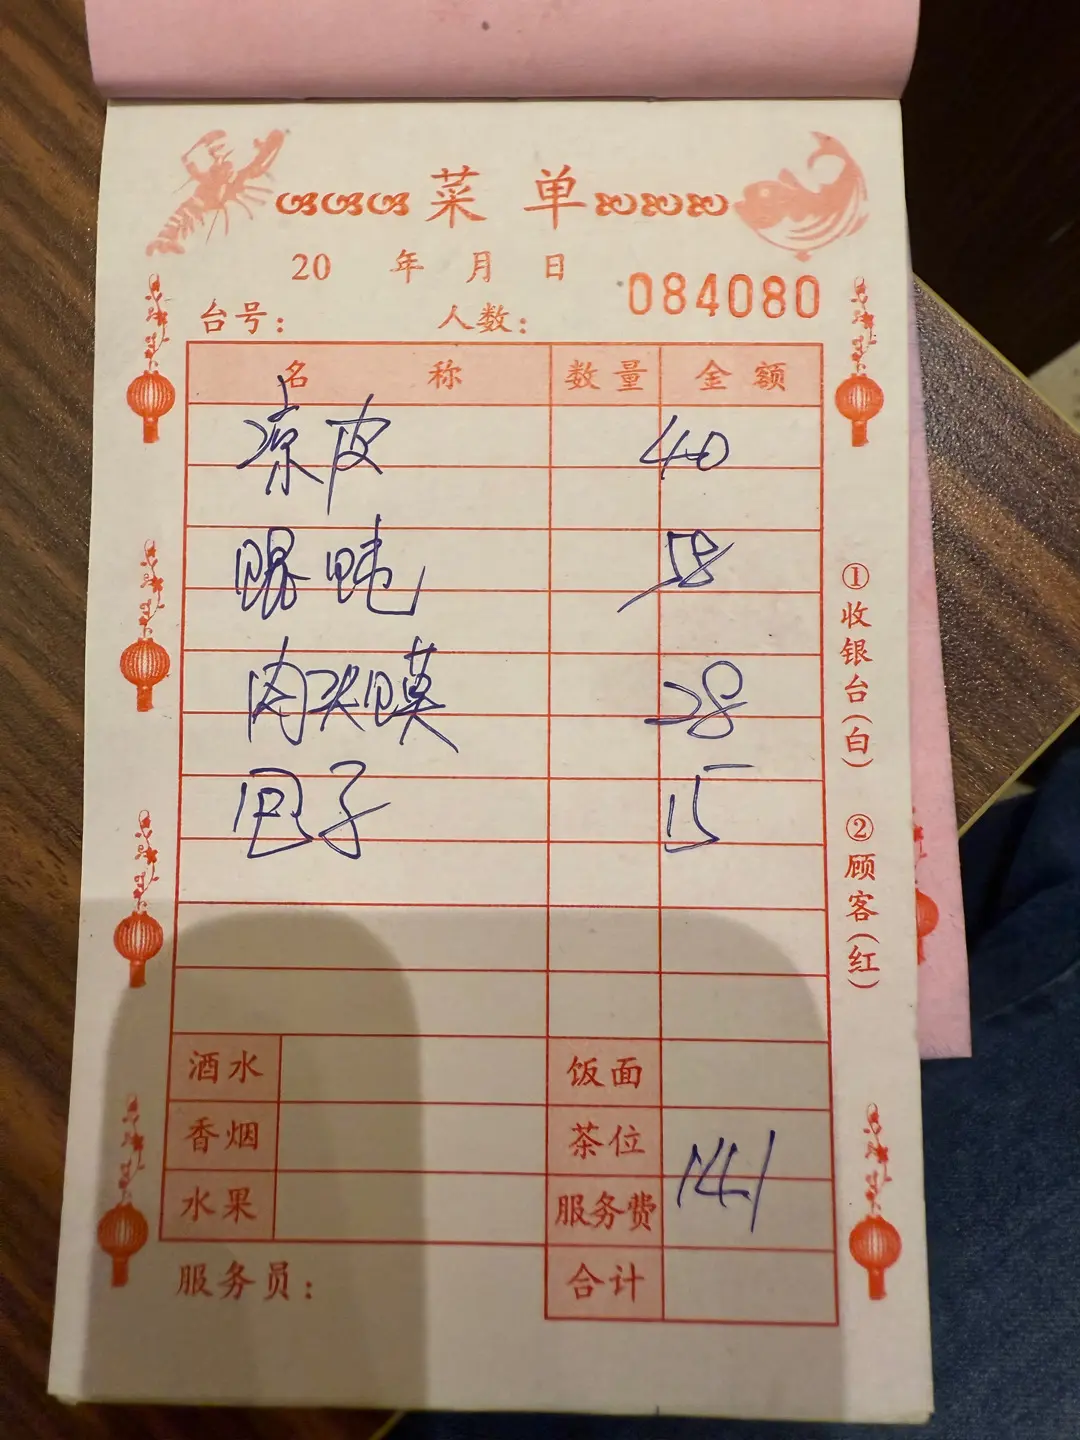 菜单
20 年 月 日
084080
台号： 人数：
名称 数量 金额
凉皮 40
58
肉夹馍 28
包子 15
酒水 饭面
香烟 茶位
水果 服务费
141
服务员： 合计
①收银台(白) ②顾客(红)